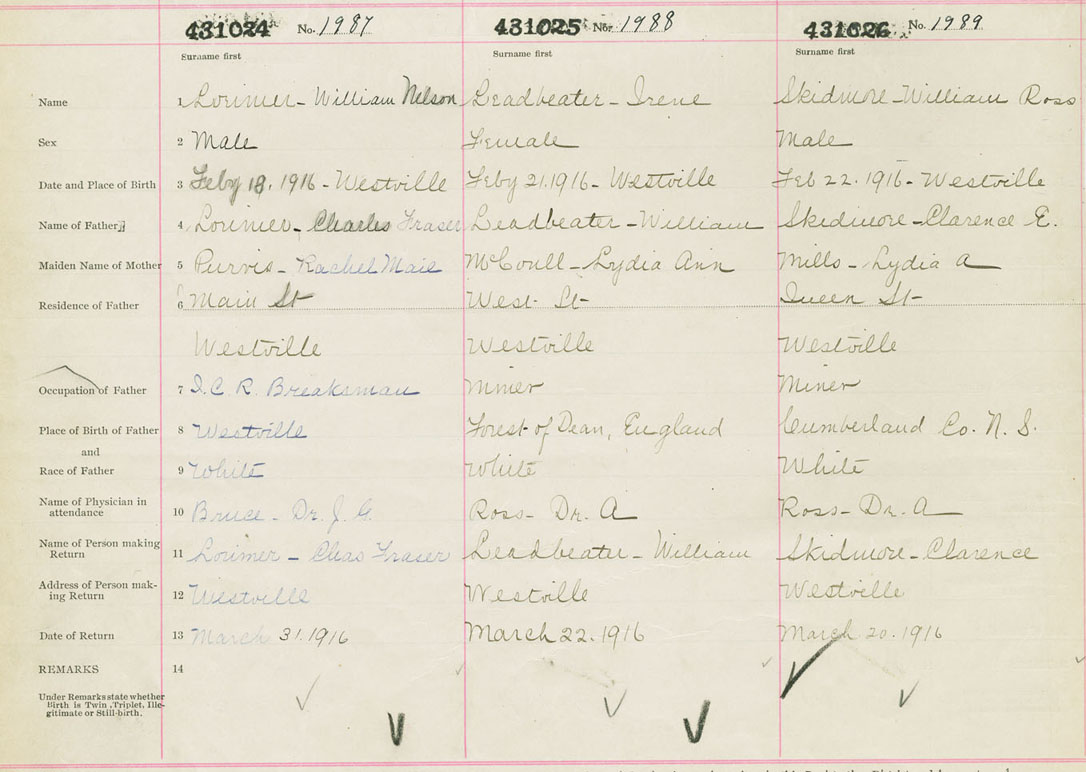 431024 No. 1987 431025 No. 1988 431026 No. 1989
Surname first Surname first Surname first
Name 1 Lorimer - William Nelson Leadbeater - Irene Skidmore - William Ross
Sex 2 Male Female Male
Date and Place of Birth 3 Feby 18, 1916 - Westville Feby 21.1916 - Westville Feb 22. 1916 - Westville
Name of Father 4 Lorimer - Charles Fraser Leadbeater - William Skidmore - Clarence E.
Maiden Name of Mother 5 Purvis - Rachel McCoull - Lydia Ann Mills - Lydia A
Residence of Father 6 Main St West St Queen St
Westville Westville Westville
Occupation of Father 7 I.C.R. Breaksman Miner Miner
Place of Birth of Father 8 Westville Forest of Dean, England Cumberland Co. N.S.
and
Race of Father 9 White White White
Name of Physician in
attendance 10 Bruce - Dr. J. G. Ross - Dr. A Ross - Dr. A
Name of Person making
Return 11 Lorimer - Chas Fraser Leadbeater - William Skidmore - Clarence
Address of Person mak-
ing Return 12 Westville Westville Westville
Date of Return 13 March 31.1916 March 22.1916 March 20.1916
REMARKS 14
Under Remarks state whether
Birth is Twin, Triplet, Ille-
gitimate or Still-birth.